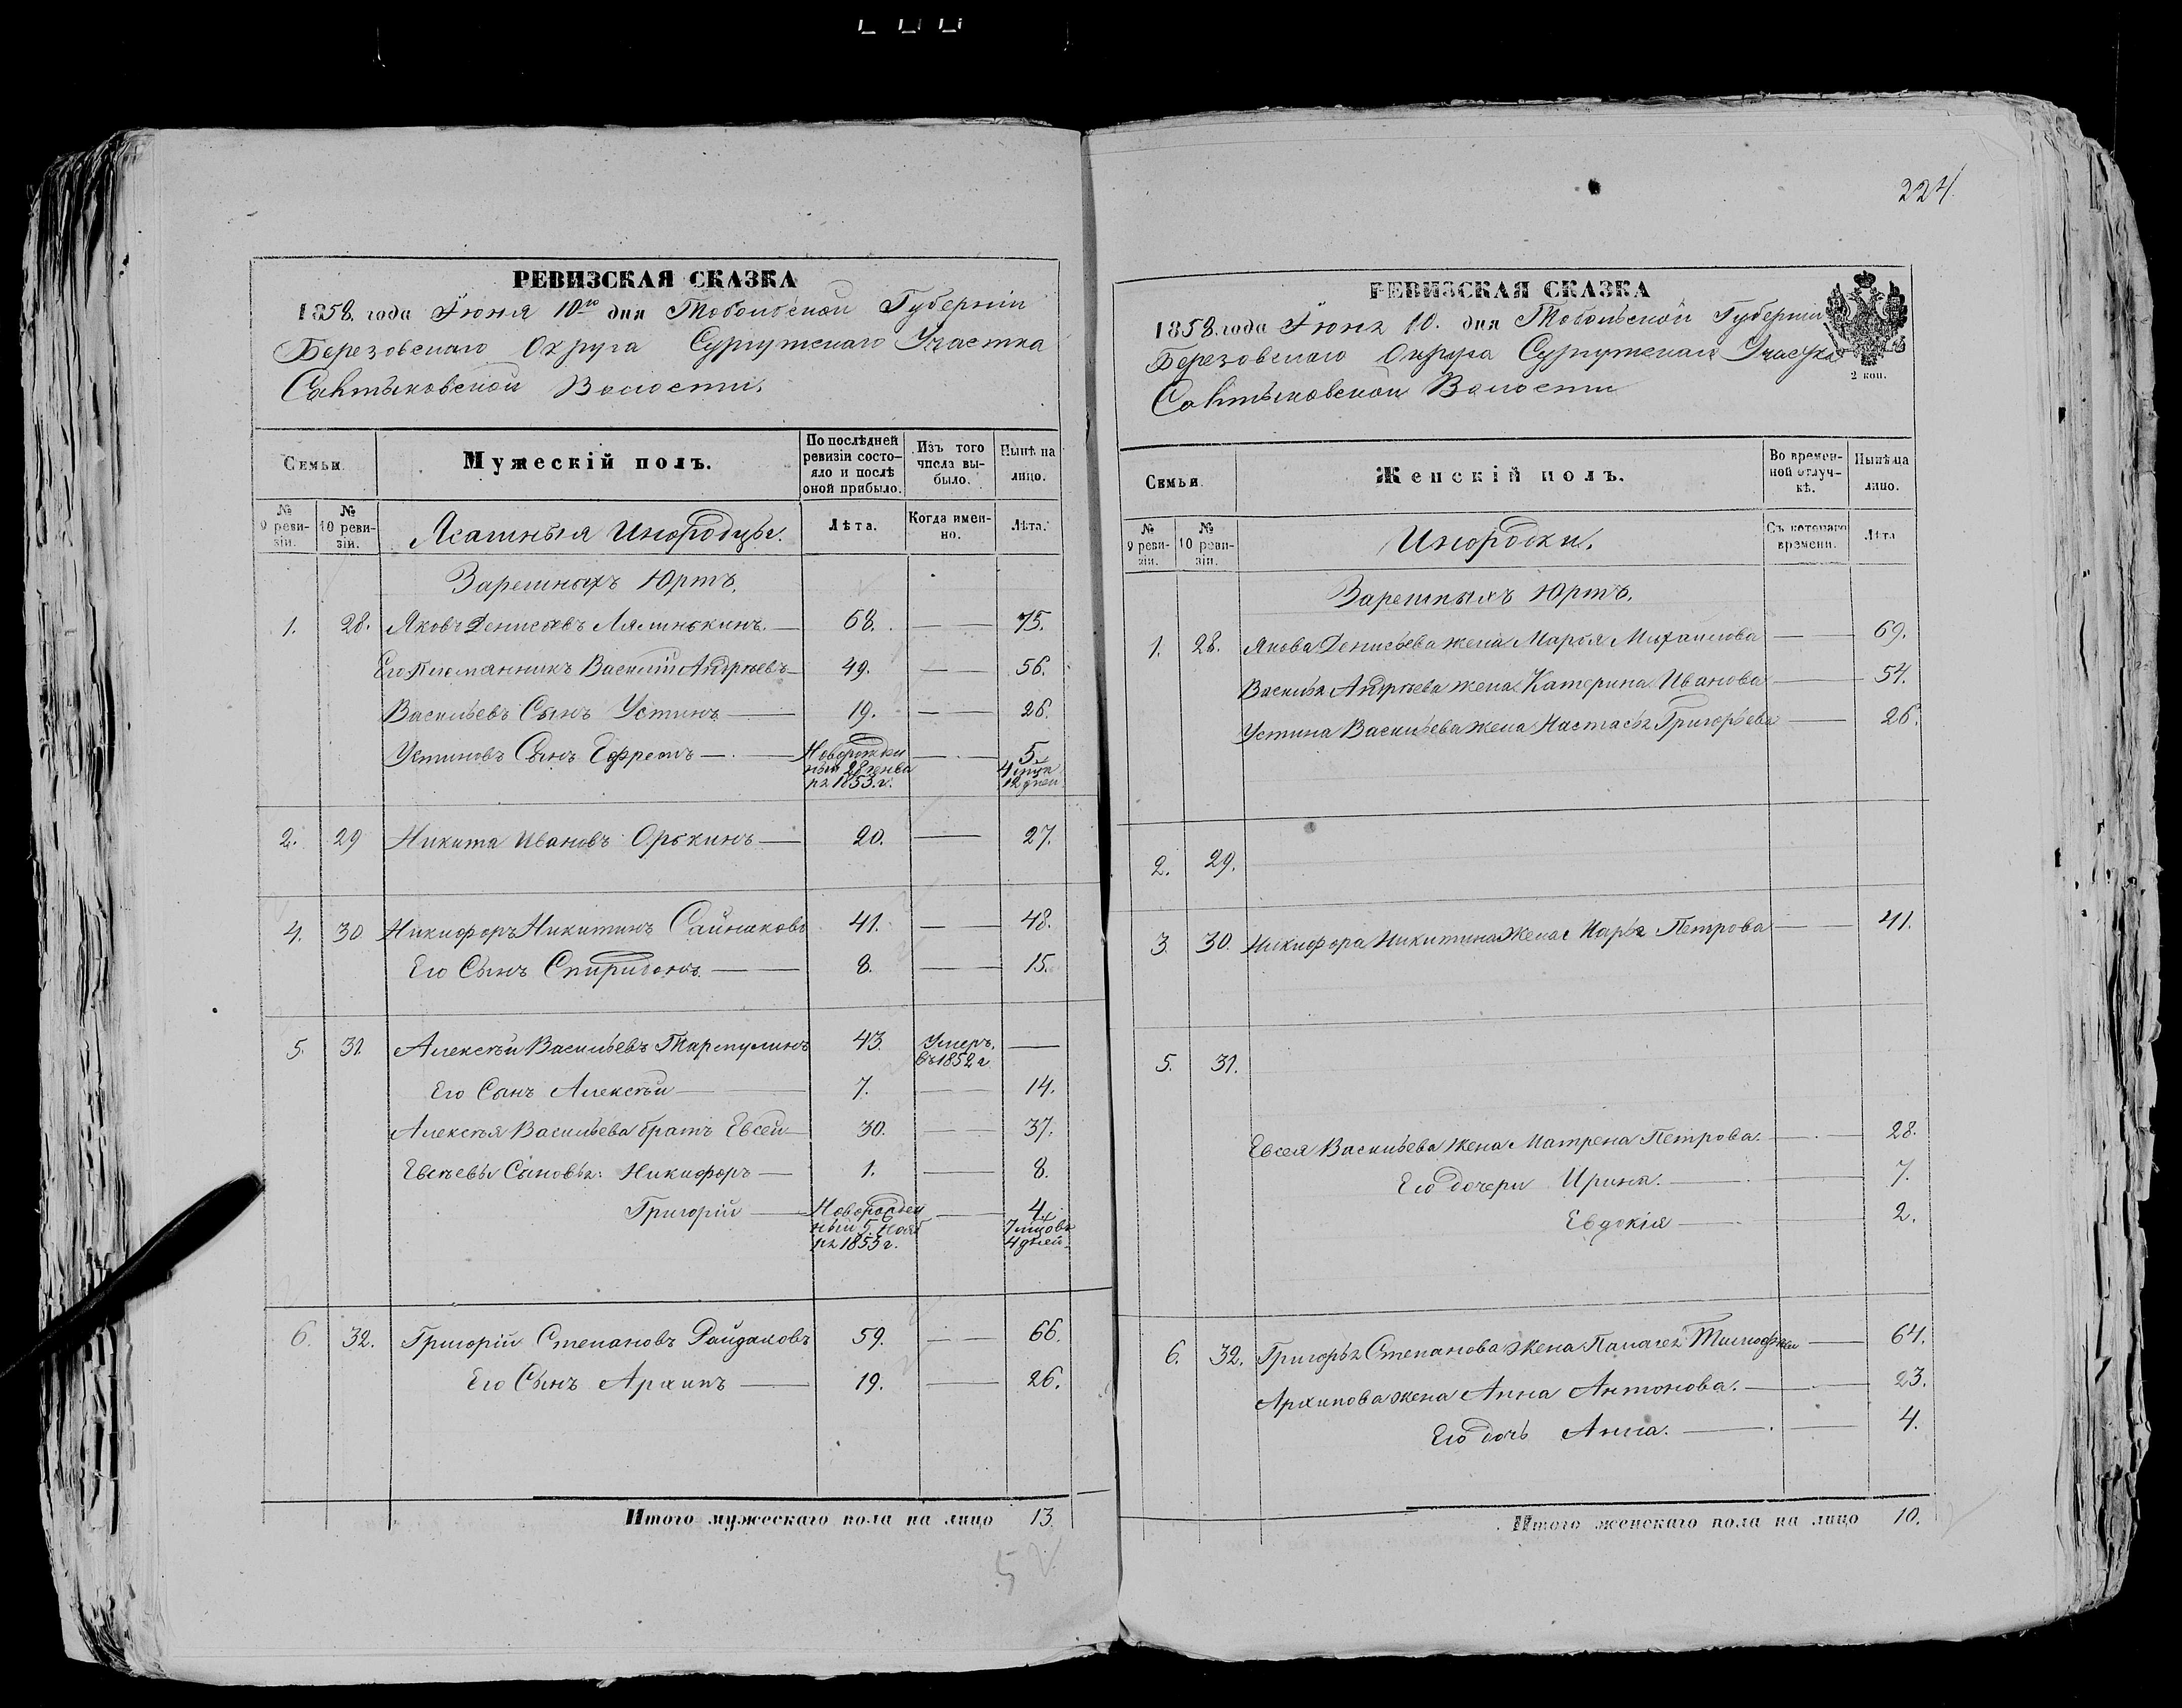 224
РЕВИЗСКАЯ СКАЗКА
1858. года Іюня 10го дня Тобольской Губерніи
Березовскаго Округа Сургутскаго Участка
Салтыковской Волости.
Семьи.
Мужескій полъ.
По послѣдней ревизіи состояло и послѣ оной прибыло.
Изъ того числа выбыло.
Нынѣ на лицо.
№ 9 ревизіи.
№ 10 ревизіи.
Ясашныя Инородцы.
Лѣта.
Когда именно.
Лѣта.
Зарешныхъ Юртъ.
1. 28. Яковъ Денисовъ Лямнскинъ. — 68. — 75.
Его Племянникъ Василій Андреевъ — 49. — 56.
Васильевъ Сынъ Устинъ — 19. — 26.
Устиновъ Сынъ Ефремъ — Новорожден — 5.
ный 28 генва 4 мѣс
ря 1853. г. 12 дней
2. 29 Никита Ивановъ Орскинъ — 20. — 27.
4. 30 Никифоръ Никитинъ 41. — 48.
Его Сынъ Спиридонъ — 8. — 15.
5. 31. Алексѣй Васильевъ 43. Умеръ. —
въ 1852 г.
Его Сынъ Алексѣй — 7. — 14.
Алексѣя Васильева братъ Евсей — 30. — 37.
Евсѣевы Сыновья: Никифоръ — 1. — 8.
Григорій — Новорожден — 4.
ный 5. Нояб 7 мѣсовъ
ря 1853 г. 4 дней
6. 32. Григорій Степановъ 59. — 66.
Его Сынъ Архипъ — 19. — 26.
Итого мужескаго пола на лицо 13.
5
РЕВИЗСКАЯ СКАЗКА
1858. года Іюня 10. дня Тобольской Губерніи
Березовскаго Округа Сургутскаго Участка
2 коп.
Салтыковской Волости
Семьи.
Женскій полъ.
Во временной отлучкѣ.
Нынѣ на лицо.
№ 9 ревизіи.
№ 10 ревизіи.
Инородки.
Съ котораго времени.
Лѣта
Зарешныхъ Юртъ.
1. 28. Якова Денисьева жена Марья Михаилова — 69.
Василья Андреева жена Катерина Иванова — 54.
Устина Васильева жена Настасья Григорьева — 26.
2. 29.
3. 30. Никифора Никитина Жена Марья Петрова — 41.
5. 31.
Евсея Васильева жена Матрена Петрова. — 28.
Его дочери Ирина. — 7.
Евдокія — 2.
6. 32. Григорья Степанова жена Палагея — 64.
Архипова жена Анна Антонова. — 23.
Его дочь Анна. — 4.
Итого женскаго пола на лицо 10.